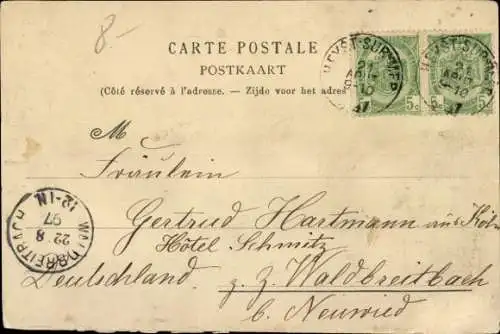 8-
CARTE POSTALE
POSTKAART
(Côté réservé à l'adresse. — Zijde voor het adres
HEYST-SUR-MER
21
AOUT
10
97
5c
HEYST-SUR-MER
21
AOUT
10
97
5c
M
Fräulein
Gertrud Hartmann aus Köln
Hôtel Schmitz
Deutschland. z. Z. Waldbreitbach
b. Neuwied
WALDBREITBACH
22 8
97
12-1N.